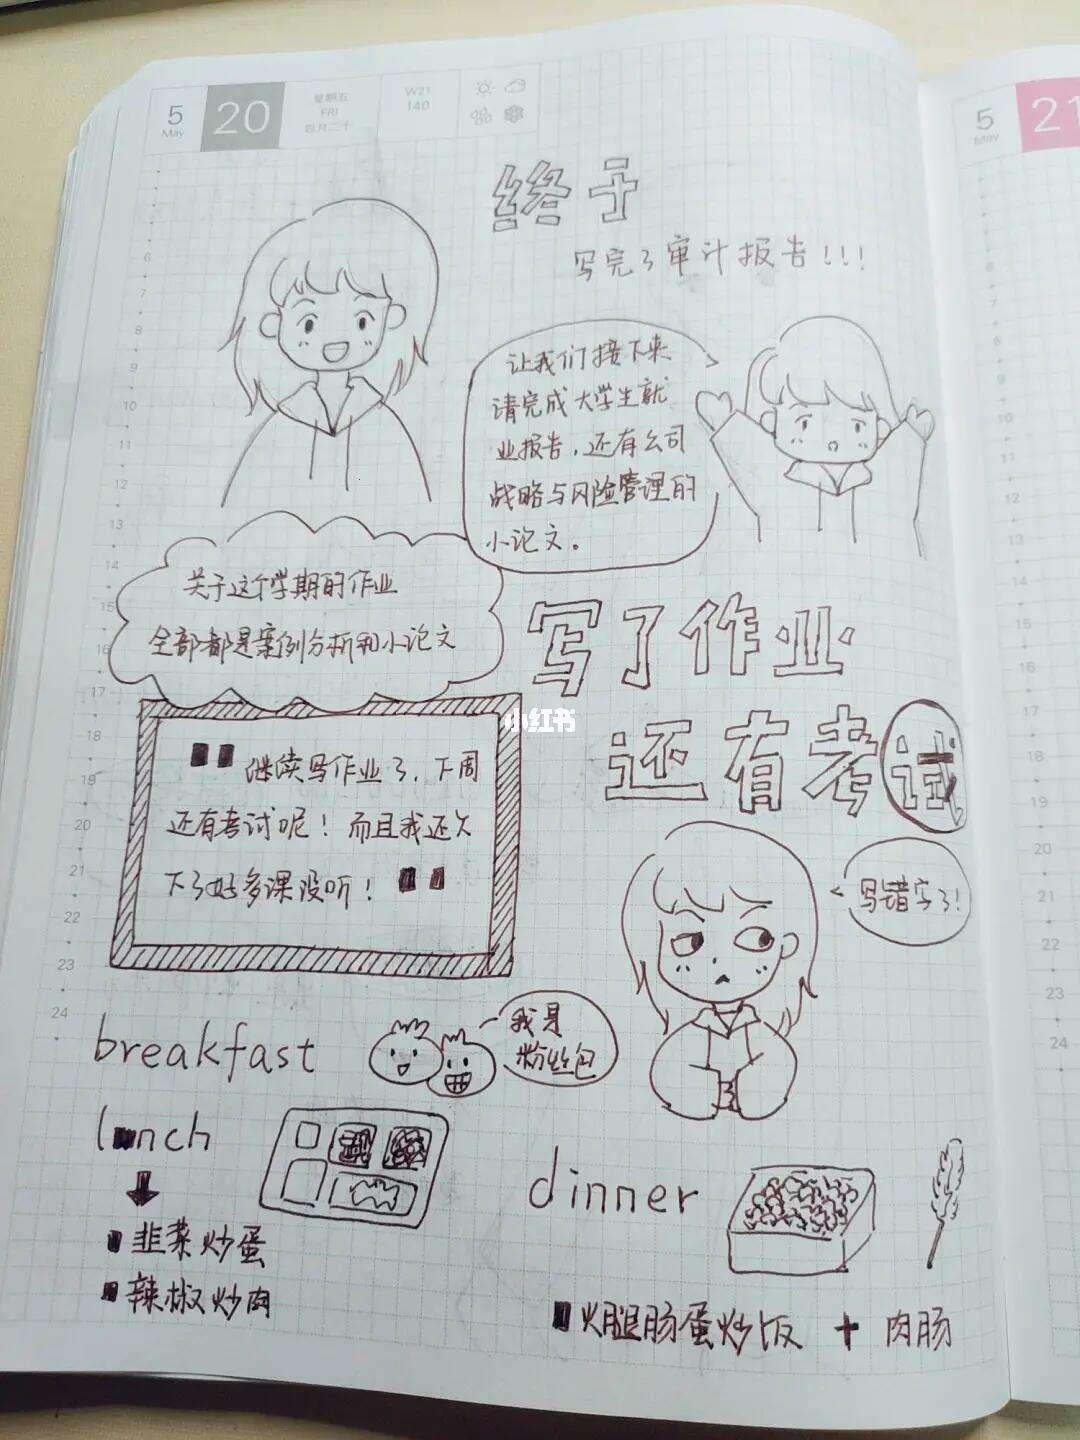 5
May
20
星期五
FRI
四月二十
W21
140
5
May
21
终于
写完了审计报告!!!
让我们接下来
请完成大学生就
业报告，还有公司
战略与风险管理的
小论文。
关于这个学期的作业
全部都是案例分析和小论文
写了作业
还有考试
小红书
继续写作业了，下周
还有考试呢！而且我还欠
下了好多课没听！
写错字了!
breakfast
我是
粉丝包
lunch
韭菜炒蛋
辣椒炒肉
dinner
火腿肠蛋炒饭 + 肉肠
6
7
8
9
10
11
12
13
14
15
16
17
18
19
20
21
22
23
24